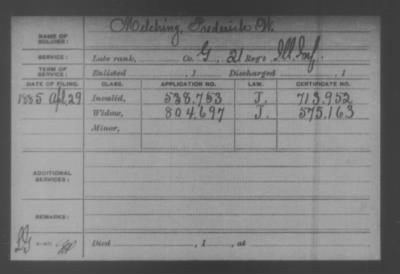 NAME OF SOLDIER: Melching, Frederick W.
SERVICE: Late rank, Co. G, 21 Reg't Ill. Inf.
TERM OF SERVICE: Enlisted , 1 Discharged , 1
DATE OF FILING. CLASS. APPLICATION NO. LAW. CERTIFICATE NO.
1885 Apl. 29 Invalid, 538.753 J. 713.952
Widow, 804.697 J. 575.163
Minor,
ADDITIONAL SERVICES:
REMARKS:
Died , 1 , at